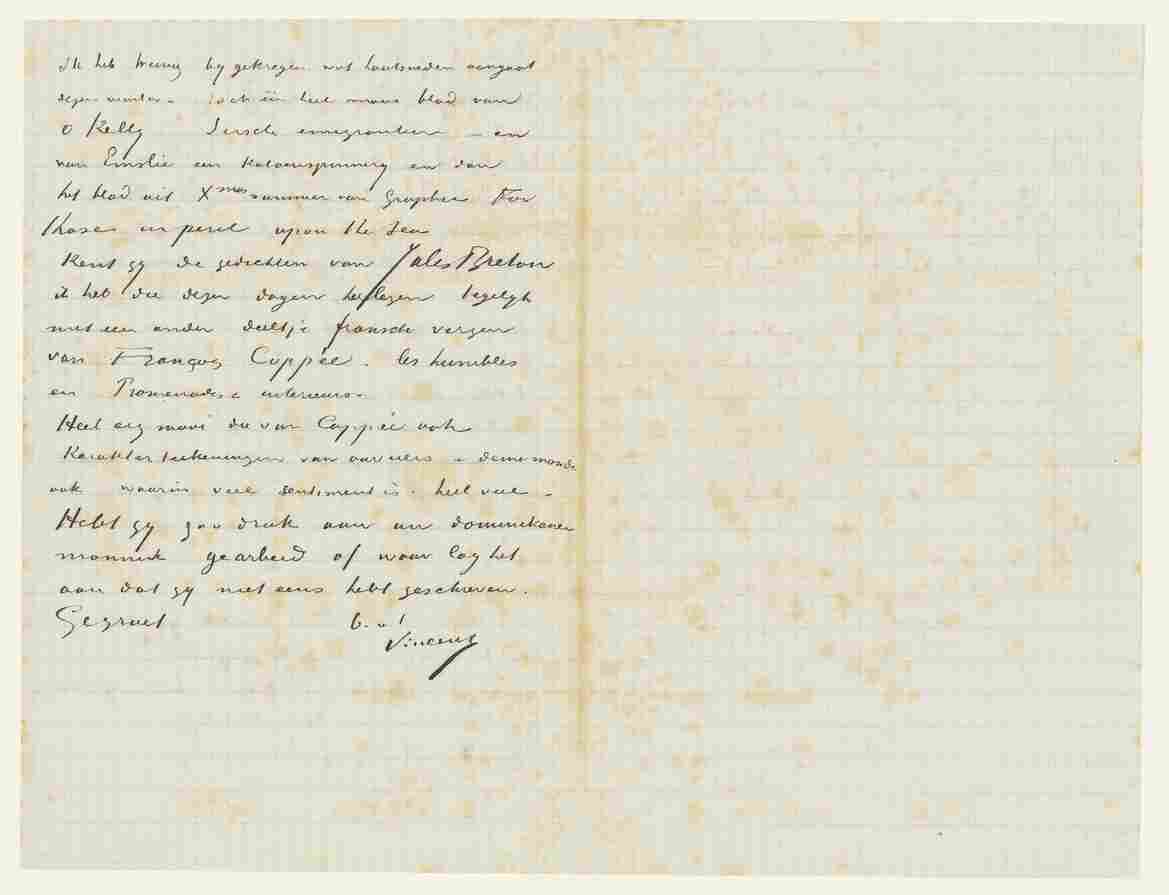 Ik heb weinig by gekregen wat houtsneden aangaat
dezen winter – toch één heel mooi blad van
O Kelly Iersche emigranten – en
van Emslie een Katoenspinnery en dan
het blad uit Xmas nummer van Graphic For
those in peril upon the sea
Kent gy de gedichten van Jules Breton
ik heb die dezer dagen herlezen tegelyk
met een ander deeltje fransche verzen
van François Coppée. les humbles
en Promenades interieurs.
Heel erg mooi die van Coppée ook
Karakterteekeningen van ouvriers – demi monde
ook waarin veel sentiment is. heel veel –
Hebt gy zoo druk aan uw dominikaner
monnik gearbeid of waar lag het
aan dat gy niet eens hebt geschreven.
Gegroet b. à t
Vincent